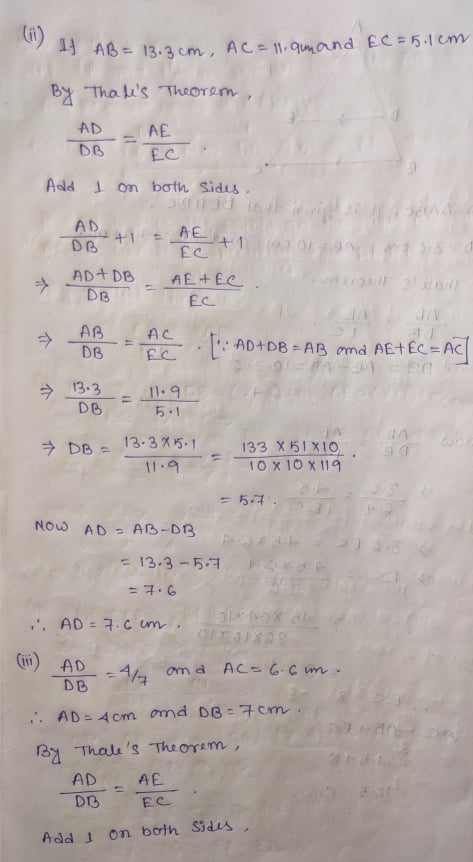 (ii) If AB = 13.3 cm, AC = 11.9cm and EC = 5.1 cm
By Thale's Theorem,
AD/DB = AE/EC.
Add 1 on both sides.
AD/DB + 1 = AE/EC + 1
⇒ AD + DB/DB = AE + EC/EC.
⇒ AB/DB = AC/EC. [∵ AD + DB = AB and AE + EC = AC]
⇒ 13.3/DB = 11.9/5.1
⇒ DB = 13.3 X 5.1/11.9 = 133 X 51 X 10/10 X 10 X 119.
= 5.7.
NOW AD = AB - DB
= 13.3 - 5.7
= 7.6
∴ AD = 7.6 cm.
(iii) AD/DB = 4/7 and AC = 6.6 cm.
∴ AD = 4cm and DB = 7cm.
By Thale's Theorem,
AD/DB = AE/EC.
Add 1 on both sides,